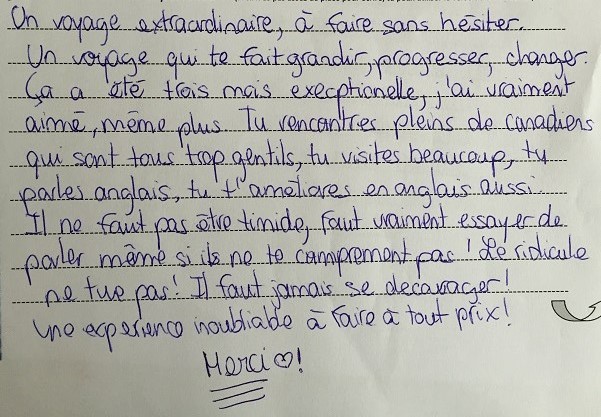 Un voyage extraordinaire, à faire sans hésiter.
Un voyage qui te fait grandir, progresser, changer.
Ça a été trois mois execptionelle, j'ai vraiment
aimé, même plus Tu rencontres pleins de canadiens
qui sont tous trop gentils, tu visites beaucoup, tu
parles anglais, tu t'améliores en anglais aussi.
Il ne faut pas être timide, faut vraiment essayer de
parler même si ils ne te comprennent pas ! Le ridicule
ne tue pas ! Il faut jamais se decourager !
Une experience inoubliable à faire à tout prix !
Merci ♡!